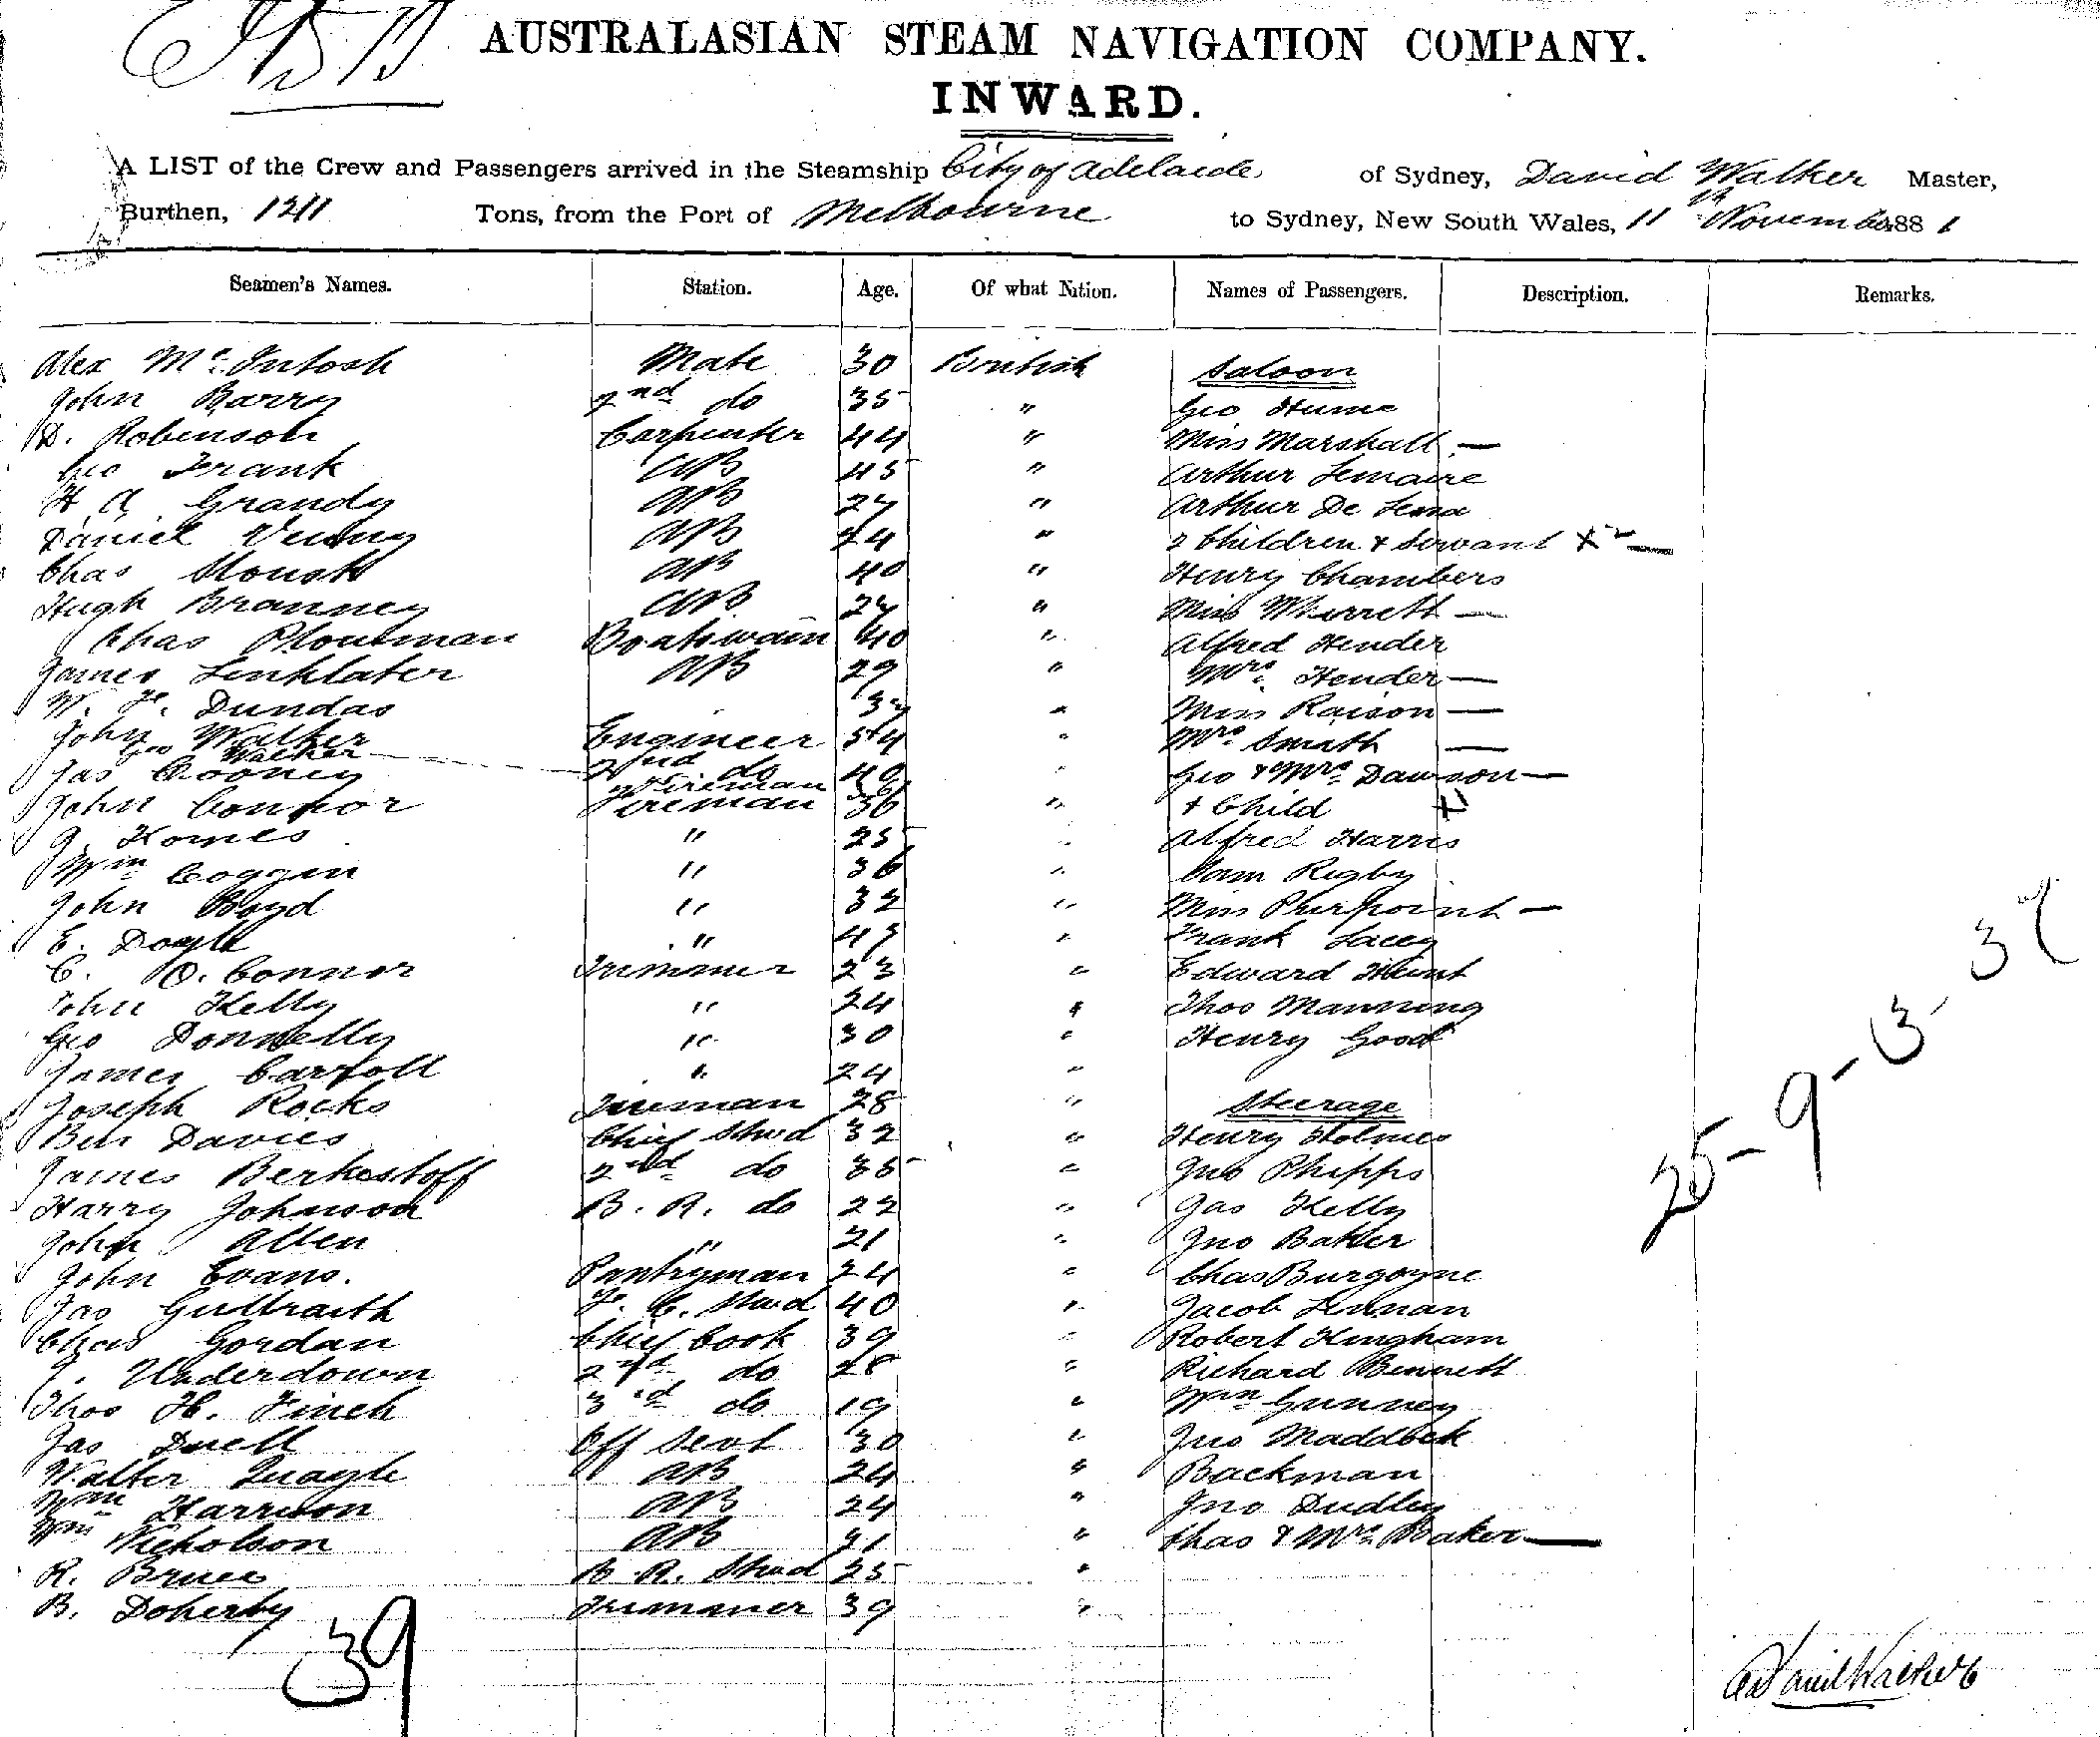 AUSTRALASIAN STEAM NAVIGATION COMPANY.
INWARD.
A LIST of the Crew and Passengers arrived in the Steamship City of Adelaide, of Sydney, David Walker Master,
Burthen, 1211 Tons, from the Port of Melbourne to Sydney, New South Wales, 11th November 1881
Seamen's Names. Station. Age. Of what Nation. Names of Passengers. Description. Remarks.
Alex McIntosh Mate 30 British Saloon
John Barry 2nd do 35 " Geo Hume
D. Robinson Carpenter 44 " Miss Marshall —
Geo Frank AB 45 " Arthur Lemaire
H A Grandy AB 27 " Arthur De Lena
Daniel AB 24 " 2 Children & Servant
Chas AB 40 " Henry Chambers
Hugh Branney AB 27 " Miss Wherrett —
Chas Ploutman Boatswain 40 " Alfred Hender
James Linklater AB 29 " Mrs. Hender —
W. F. Dundas " Miss Raison —
John Walker Engineer 54 " Mrs. Smith —
Geo Walker 2nd do 40
Jas Rooney Fireman " Geo & Mrs. Dawson —
John Connor Fireman 36 " & Child
J. Homes " 25 " Alfred Harris
Wm Coggin " 36 " Sam Rigby
John Boyd " 32 " Miss Pierpoint —
E. Doyle " 47 " Frank Lacey
C. O. Connor Trimmer 23 " Edward Hunt
John Kelly " 24 " Thos Manning
Geo Donnelly " 30 " Henry Good
James Carroll " 24 "
Joseph Rocks Fireman 28 " Steerage
Ben Davies Chief Stwd 32 " Henry Holmes
James Berkestoff 2nd do 35 " Jno Phipps
Harry Johnson B. R. do 22 " Jas Kelly
John Allen " 21 " Jno Baker
John Evans. Pantryman 24 " Chas Burgoyne
Jas Gulbraith F. C. Stwd 40 " Jacob Lennan
Chas Gordan Chief Cook 39 " Robert Kingham
J. Underdown 2nd do 28 " Richard Bennett
Thos H. Finch 3rd do 19 " Wm Gunney
Jas Duell Off Servt 30 " Jno Maddock
Walter Quayle AB 24 " Backman
Wm Harrison AB 24 " Jno Dudley
Wm Nicholson AB 21 " Chas & Mrs. Baker —
R. Bruce B. R. Stwd 25 "
B. Doherty Trimmer 39 "
39
25 - 9 - 3 - 37
David Walker